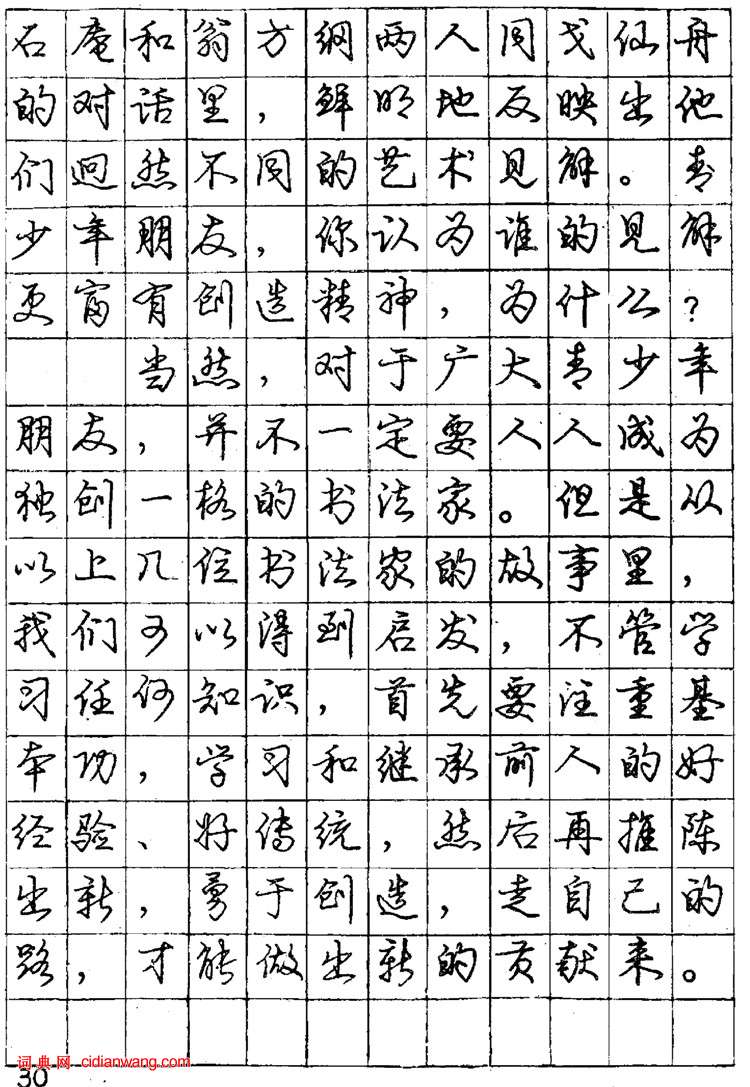 石庵和翁方纲两人同戈仙舟
的对话里，鲜明地反映出他
们迥然不同的艺术见解。青
少年朋友，你认为谁的见解
更富有创造精神，为什么？
当然，对于广大青少年
朋友，并不一定要人人成为
独创一格的书法家。但是从
以上几位书法家的故事里，
我们可以得到启发，不管学
习任何知识，首先要注重基
本功，学习和继承前人的好
经验、好传统，然后再推陈
出新，勇于创造，走自己的
路，才能做出新的贡献来。
词典网 cidianwang.com
30